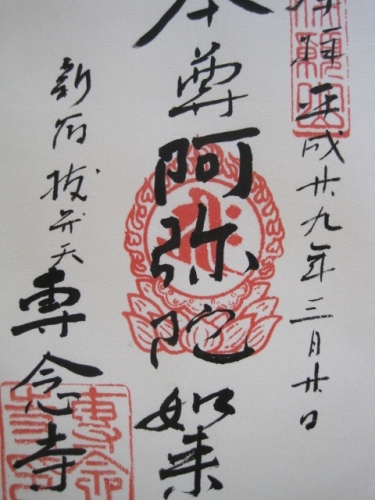 拝 平成廿九年三月廿日
本尊 阿弥陀如来
新宿抜弁天
専念寺
専念寺